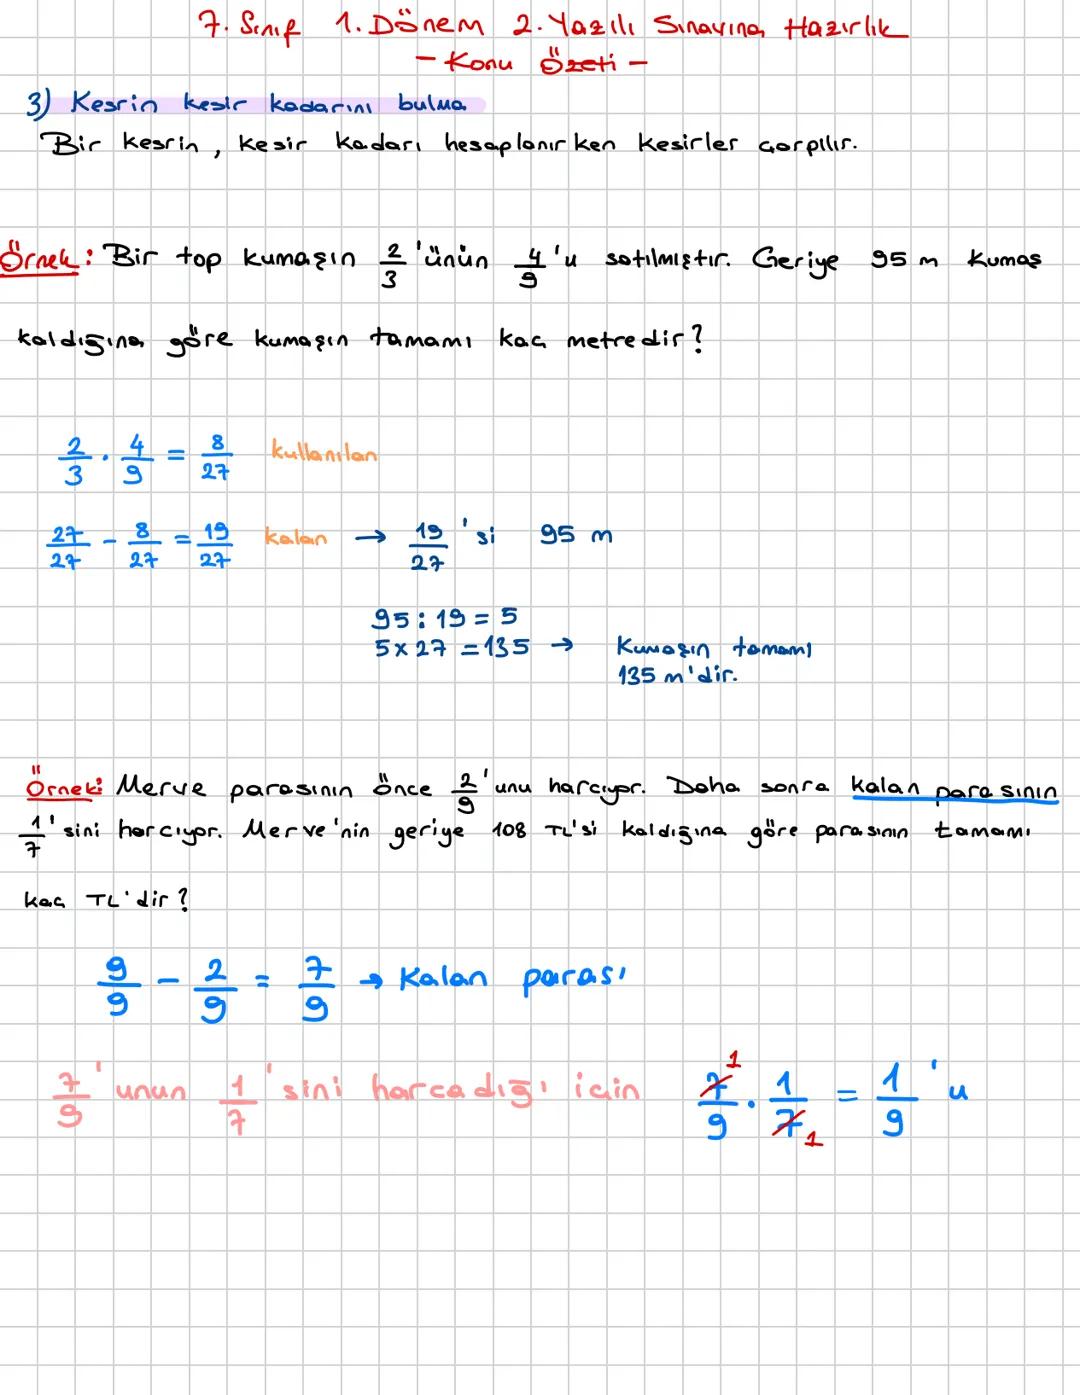 7. Sınıf 1. Dönem 2. Yazılı Sınavına Hazırlık
- Konu Özeti -
3) Kesrin kesir kadarını bulma
Bir kesrin, kesir kadarı hesaplanırken kesirler çarpılır.
Örnek: Bir top kumaşın 2/3'ünün 4/9'u satılmıştır. Geriye 95 m kumaş
kaldığına göre kumaşın tamamı kaç metredir?
2/3 . 4/9 = 8/27 kullanılan
27/27 - 8/27 = 19/27 kalan → 19/27'si 95 m
95 : 19 = 5
5 x 27 = 135 → Kumaşın tamamı
135 m'dir.
Örnek: Merve parasının önce 2/9'unu harcıyor. Daha sonra kalan parasının
1/7'sini harcıyor. Merve'nin geriye 108 TL'si kaldığına göre parasının tamamı
kaç TL'dir?
9/9 - 2/9 = 7/9 → Kalan parası
7/9'unun 1/7'sini harcadığı için 7/9 . 1/7 = 1/9'u
1
1